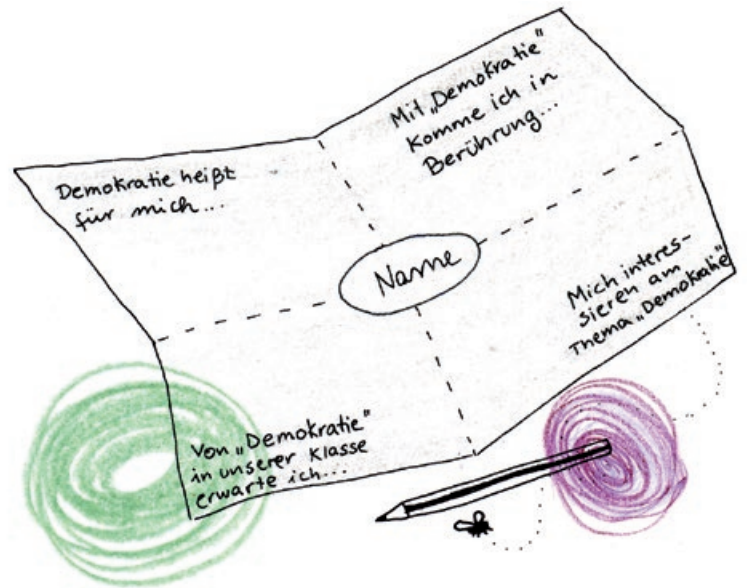 Demokratie heißt
für mich...
Mit „Demokratie"
komme ich in
Berührung...
Name
Mich interes-
sieren am
Thema „Demokratie"
Von „Demokratie"
in unserer Klasse
erwarte ich...